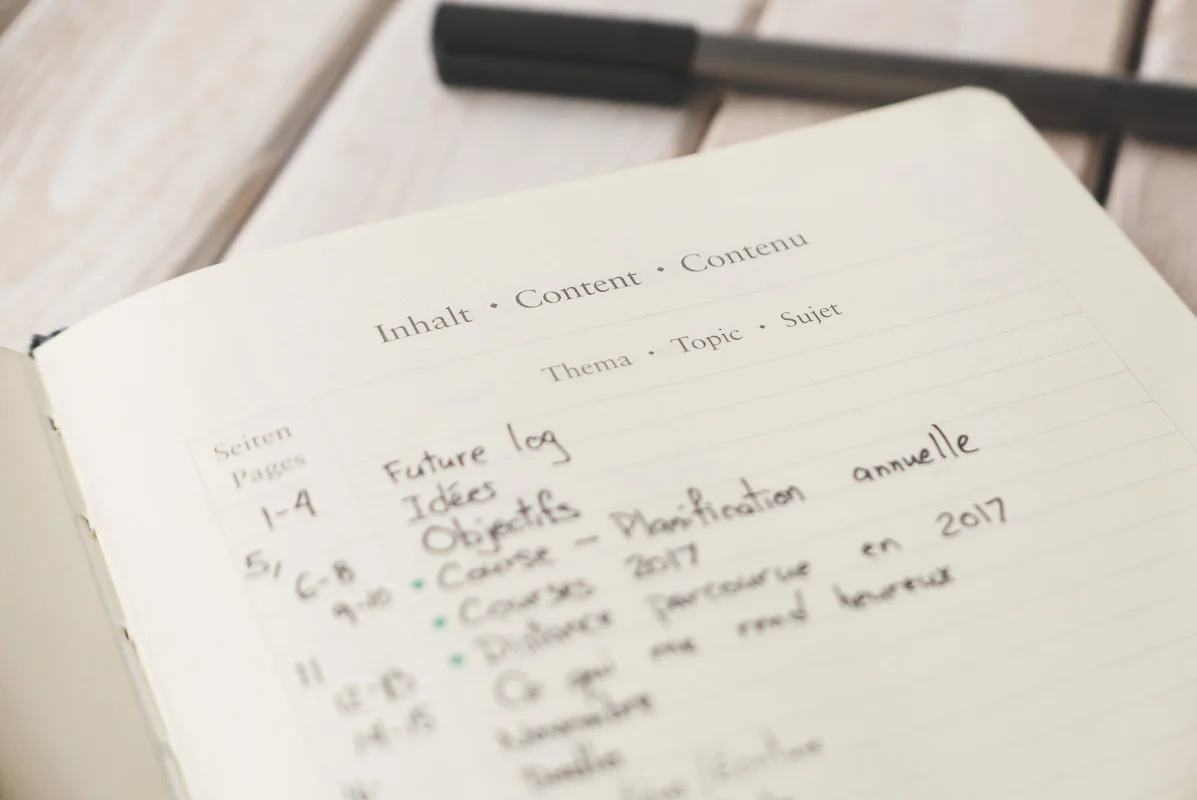 Inhalt • Content • Contenu
Thema • Topic • Sujet
Seiten
Pages
1-4 Future log
5, Idées
6-8 Objectifs
9-10 • Course - Planification annuelle
• Courses 2017
11 • Distance parcourue en 2017
12-13 Ce qui me rend heureux
14-15 Novembre